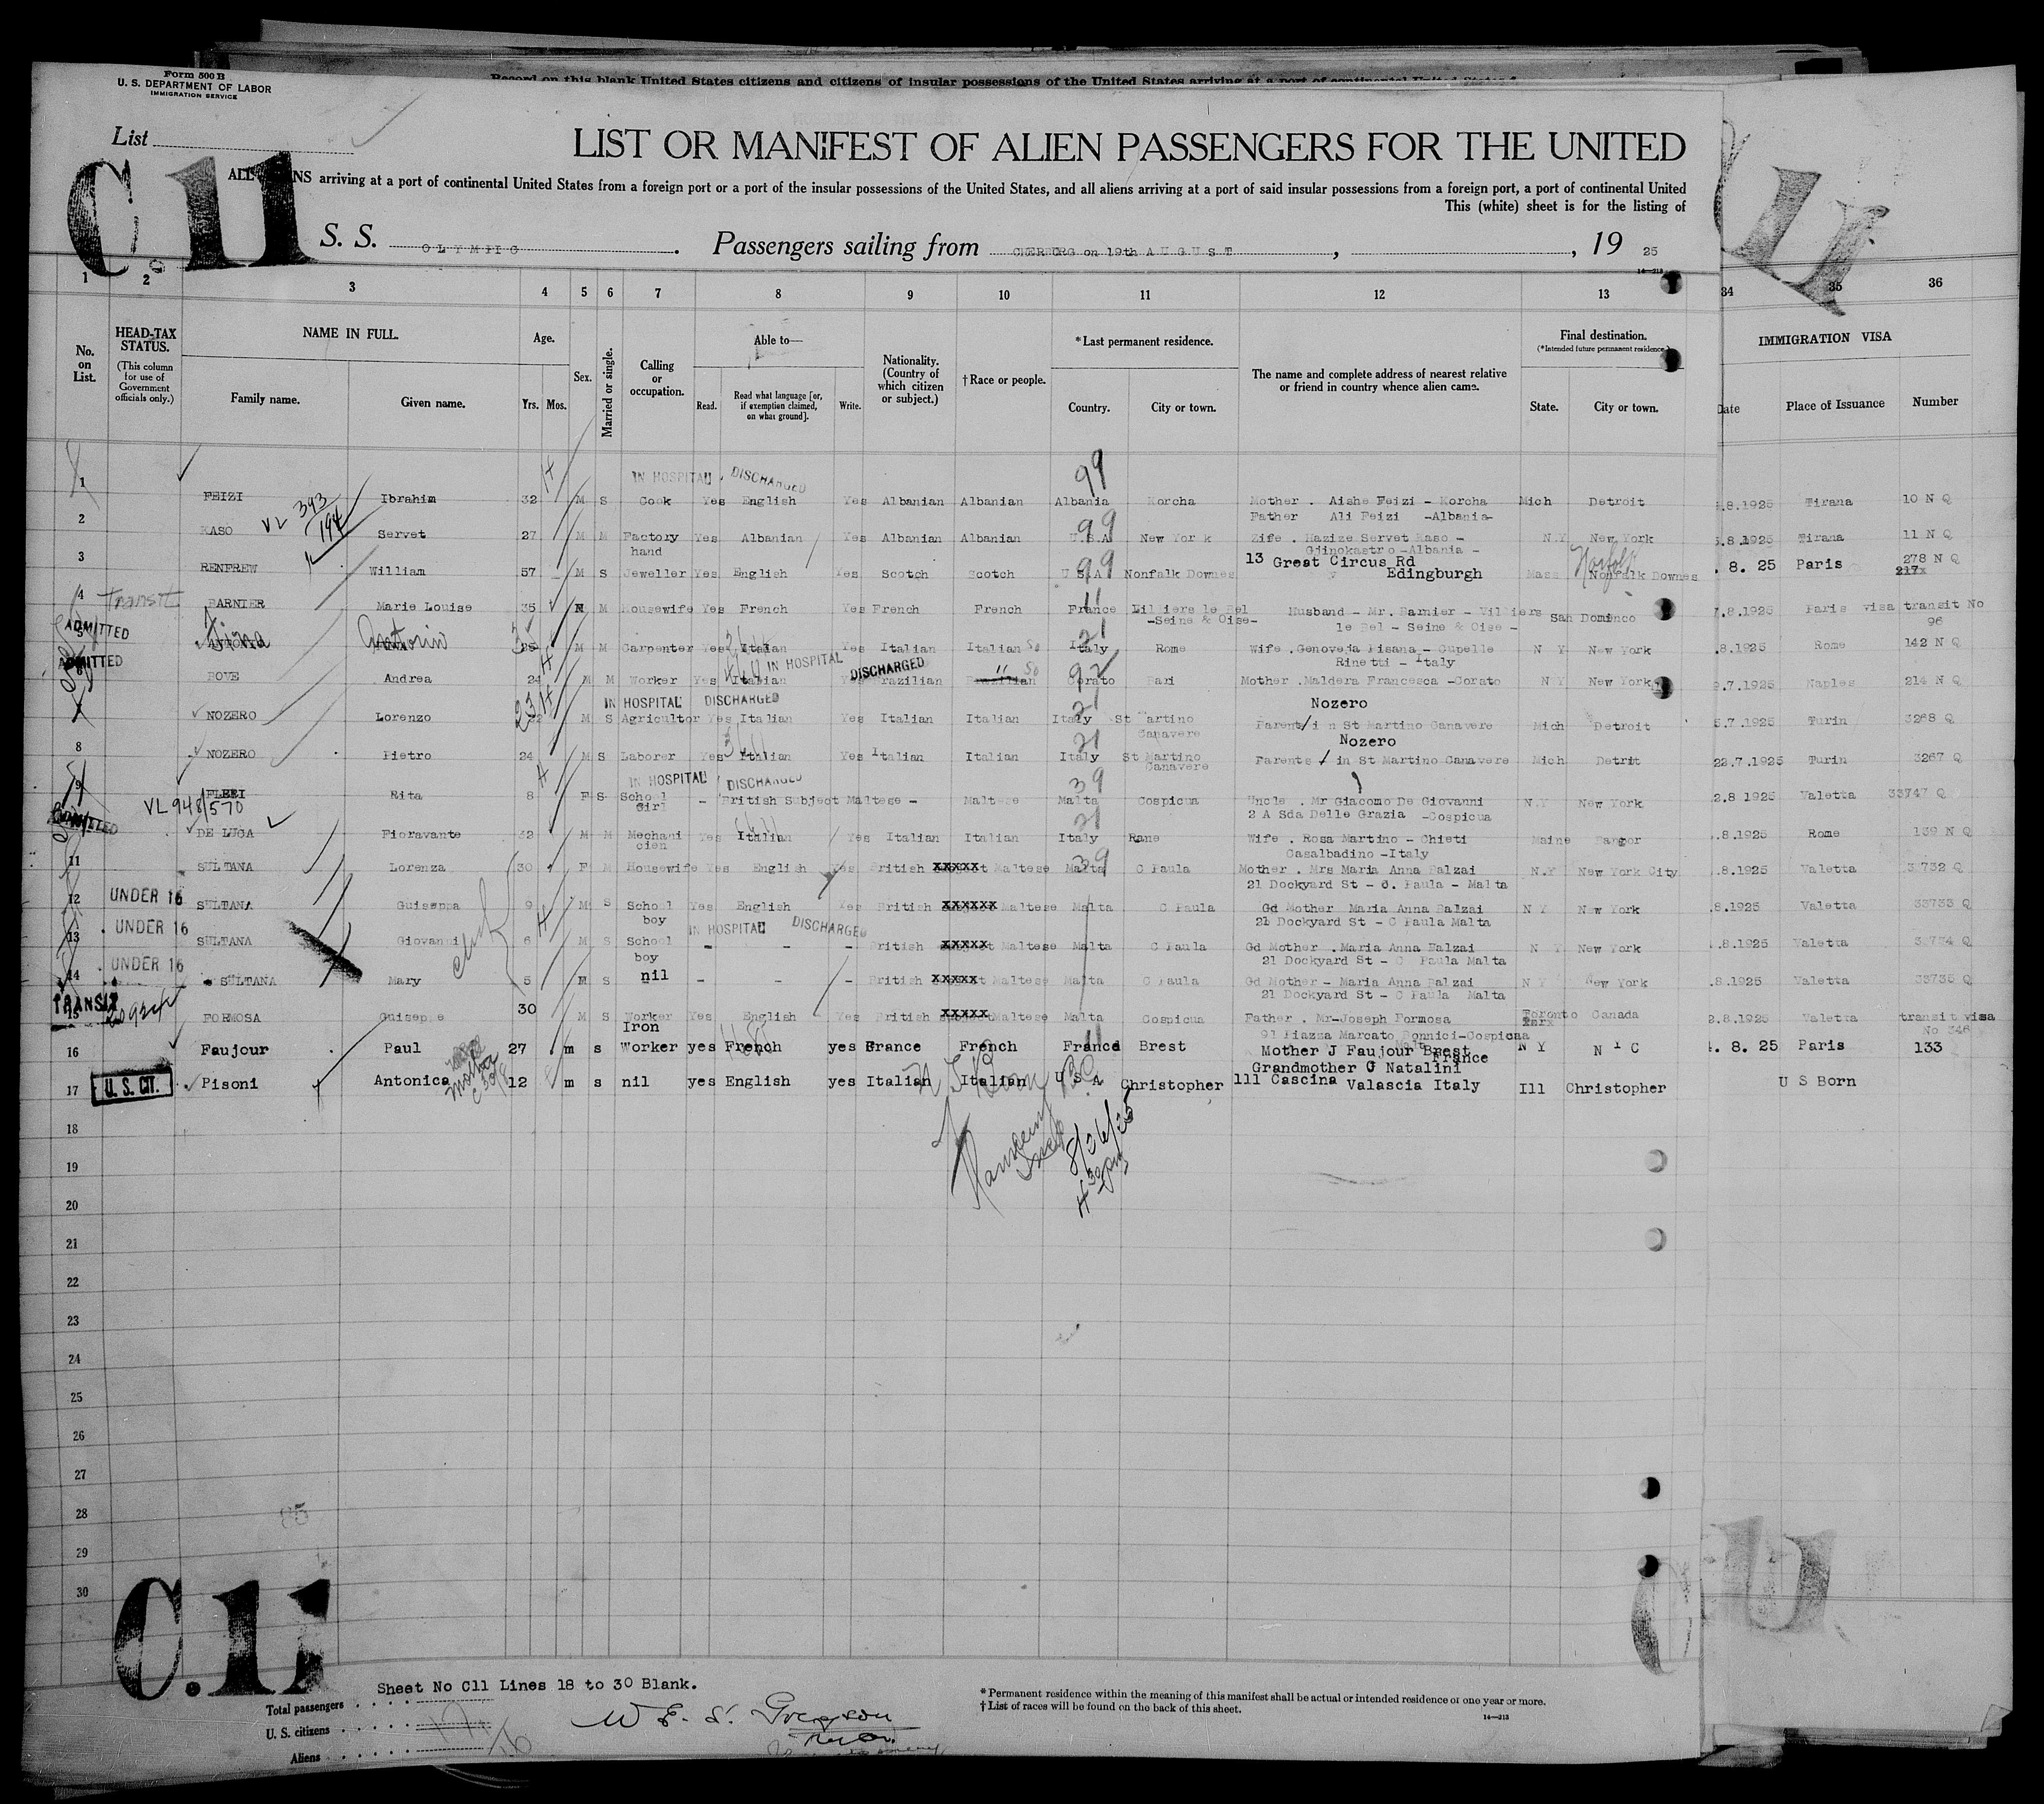 Record on this blank United States citizens and citizens of insular possessions of the United States arriving at a port of continental United States
Form 500 B
U. S. DEPARTMENT OF LABOR
IMMIGRATION SERVICE
List
C 11
LIST OR MANIFEST OF ALIEN PASSENGERS FOR THE UNITED
ALL NS arriving at a port of continental United States from a foreign port or a port of the insular possessions of the United States, and all aliens arriving at a port of said insular possessions from a foreign port, a port of continental United
This (white) sheet is for the listing of
S. S. OLYMPIC. Passengers sailing from CHERBURG on 19th AUGUST, , 19 25
14—213
1 2 3 4 5 6 7 8 9 10 11 12 13 34 35 36
No. on List. HEAD-TAX STATUS. (This column for use of Government officials only.) NAME IN FULL. Family name. Given name. Age. Yrs. Mos. Sex. Married or single. Calling or occupation. Able to— Read. Read what language [or, if exemption claimed, on what ground]. Write. Nationality. (Country of which citizen or subject.) † Race or people. * Last permanent residence. Country. City or town. The name and complete address of nearest relative or friend in country whence alien came. Final destination. (*Intended future permanent residence.) State. City or town. IMMIGRATION VISA Date Place of Issuance Number
IN HOSPITAL DISCHARGED 99
1 FEIZI Ibrahim 32 M S Cook Yes English Yes Albanian Albanian Albania Korcha Mother . Aishe Feizi - Korcha Mich Detroit .8.1925 Tirana 10 N Q
Father Ali Feizi -Albania-
VL 393/194 99
2 KASO Servet 27 M M Factory Yes Albanian Yes Albanian Albanian U.S.A New York Zife . Hazize Servet Kaso - N.Y New York .8.1925 Tirana 11 N Q
hand Gjinokastro -Albania -
99 13 Great Circus Rd Norfolk 278 N Q
3 RENFREW William 57 M S Jeweller Yes English Yes Scotch Scotch U S A Nonfalk Downes Edingburgh Mass Nonfalk Downes . 8. 25 Paris 217x
4 Transit BARNIER Marie Louise 35 M Housewife Yes French Yes French French France Villiers le Bel Husband - Mr. Barnier - Villiers San Domingo .8.1925 Paris visa transit No
-Seine & Oise- le Bel - Seine & Oise - 96
ADMITTED 21
5 Antonio M M Carpenter Yes Italian Yes Italian Italian Italy Rome Wife .Genoveja Pisana - Cupelle N Y New York .8.1925 Rome 142 N Q
Rinetti - Italy
ADMITTED IN HOSPITAL DISCHARGED 92
BOVE Andrea 24 M M Worker Yes Italian Yes Brazilian Brazilian Corato Bari Mother .Maldera Francesca -Corato N Y New York .7.1925 Naples 214 N Q
IN HOSPITAL DISCHARGED 21 Nozero
NOZERO Lorenzo 23 22 M S Agricultor Yes Italian Yes Italian Italian Italy St Martino Parent in St Martino Canavere Mich Detroit .7.1925 Turin 3268 Q
Canavere
21 Nozero
8 NOZERO Pietro 24 M S Laborer Yes Italian Yes Italian Italian Italy St Martino Parents in St Martino Canavere Mich Detrit 22.7.1925 Turin 3267 Q
Canavere
IN HOSPITAL DISCHARGED 39
9 Rita 8 F S School - British Subject Maltese - Maltese Malta Cospicua Uncle . Mr Giacomo De Giovanni N.Y New York 2.8 1925 Valetta 33747 Q
Girl 2 A Sda Delle Grazia -Cospicua
VL 948/570 ADMITTED 21
DE LUCA Fioravante 32 M M Mechani Yes Italian Yes Italian Italian Italy Rane Wife . Rosa Martino - Chieti Maine Bangor .8.1925 Rome 139 N Q
cien Casalbadino -Italy
39
11 SULTANA Lorenza 30 F M Housewife Yes English Yes British xxxxx Maltese Malta C Paula Mother . Mrs Maria Anna Balzai N.Y New York City .8.1925 Valetta
21 Dockyard St - C. Paula - Malta
12 UNDER 16 SULTANA Guiseppa 9 M S School Yes English Yes British xxxxxx Maltese Malta C Paula Gd Mother Maria Anna Balzai N Y New York .8.1925 Valetta 33733 Q
boy 21 Dockyard St - C Paula Malta
IN HOSPITAL DISCHARGED
13 UNDER 16 SULTANA Giovanni 6 M S School - - - British xxxxx Maltese Malta C Paula Gd Mother .Maria Anna Balzai N Y New York .8.1925 Valetta 33734 Q
boy 21 Dockyard St - C Paula Malta
14 UNDER 16 SULTANA Mary 5 S nil - - - British xxxxx Maltese Malta C Paula Gd Mother - Maria Anna Balzai N Y New York .8.1925 Valetta 33735 Q
21 Dockyard St - C Paula Malta
TRANSIT
15 FORMOSA Guiseppe 30 M S Worker Yes English Yes British xxxxx Maltese Malta Cospicua Father . Mr-Joseph Formosa Toronto Canada 2.8.1925 Valetta transit visa
91 Piazza Marcato Bonnici-Cospicua No 346
Iron 11
16 Faujour Paul 27 m s Worker yes French yes France French France Brest Mother J Faujour Brest France N Y N Y C . 8. 25 Paris 133
Grandmother G Natalini
17 U.S. CIT. Pisoni Antonica 12 m s nil yes English yes Italian Italian U S A Christopher 111 Cascina Valascia Italy Ill Christopher U S Born
8/26/25
4 30 pm
18
19
20
21
22
23
24
25
26
27
28
29
30
85
C.11
Sheet No C11 Lines 18 to 30 Blank.
Total passengers . . . .
U. S. citizens . . . . .
Aliens . . . . . .
* Permanent residence within the meaning of this manifest shall be actual or intended residence of one year or more.
† List of races will be found on the back of this sheet.
14—213